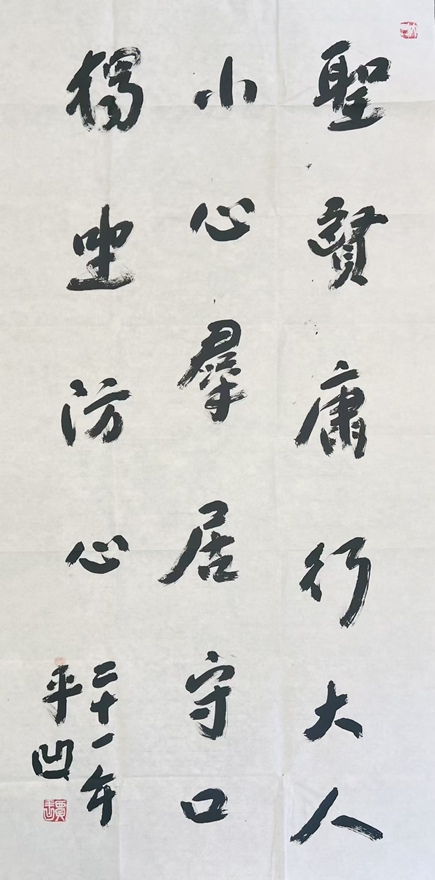 聖賢庸行大人
小心羣居守口
獨坐防心
二十一年
平凹